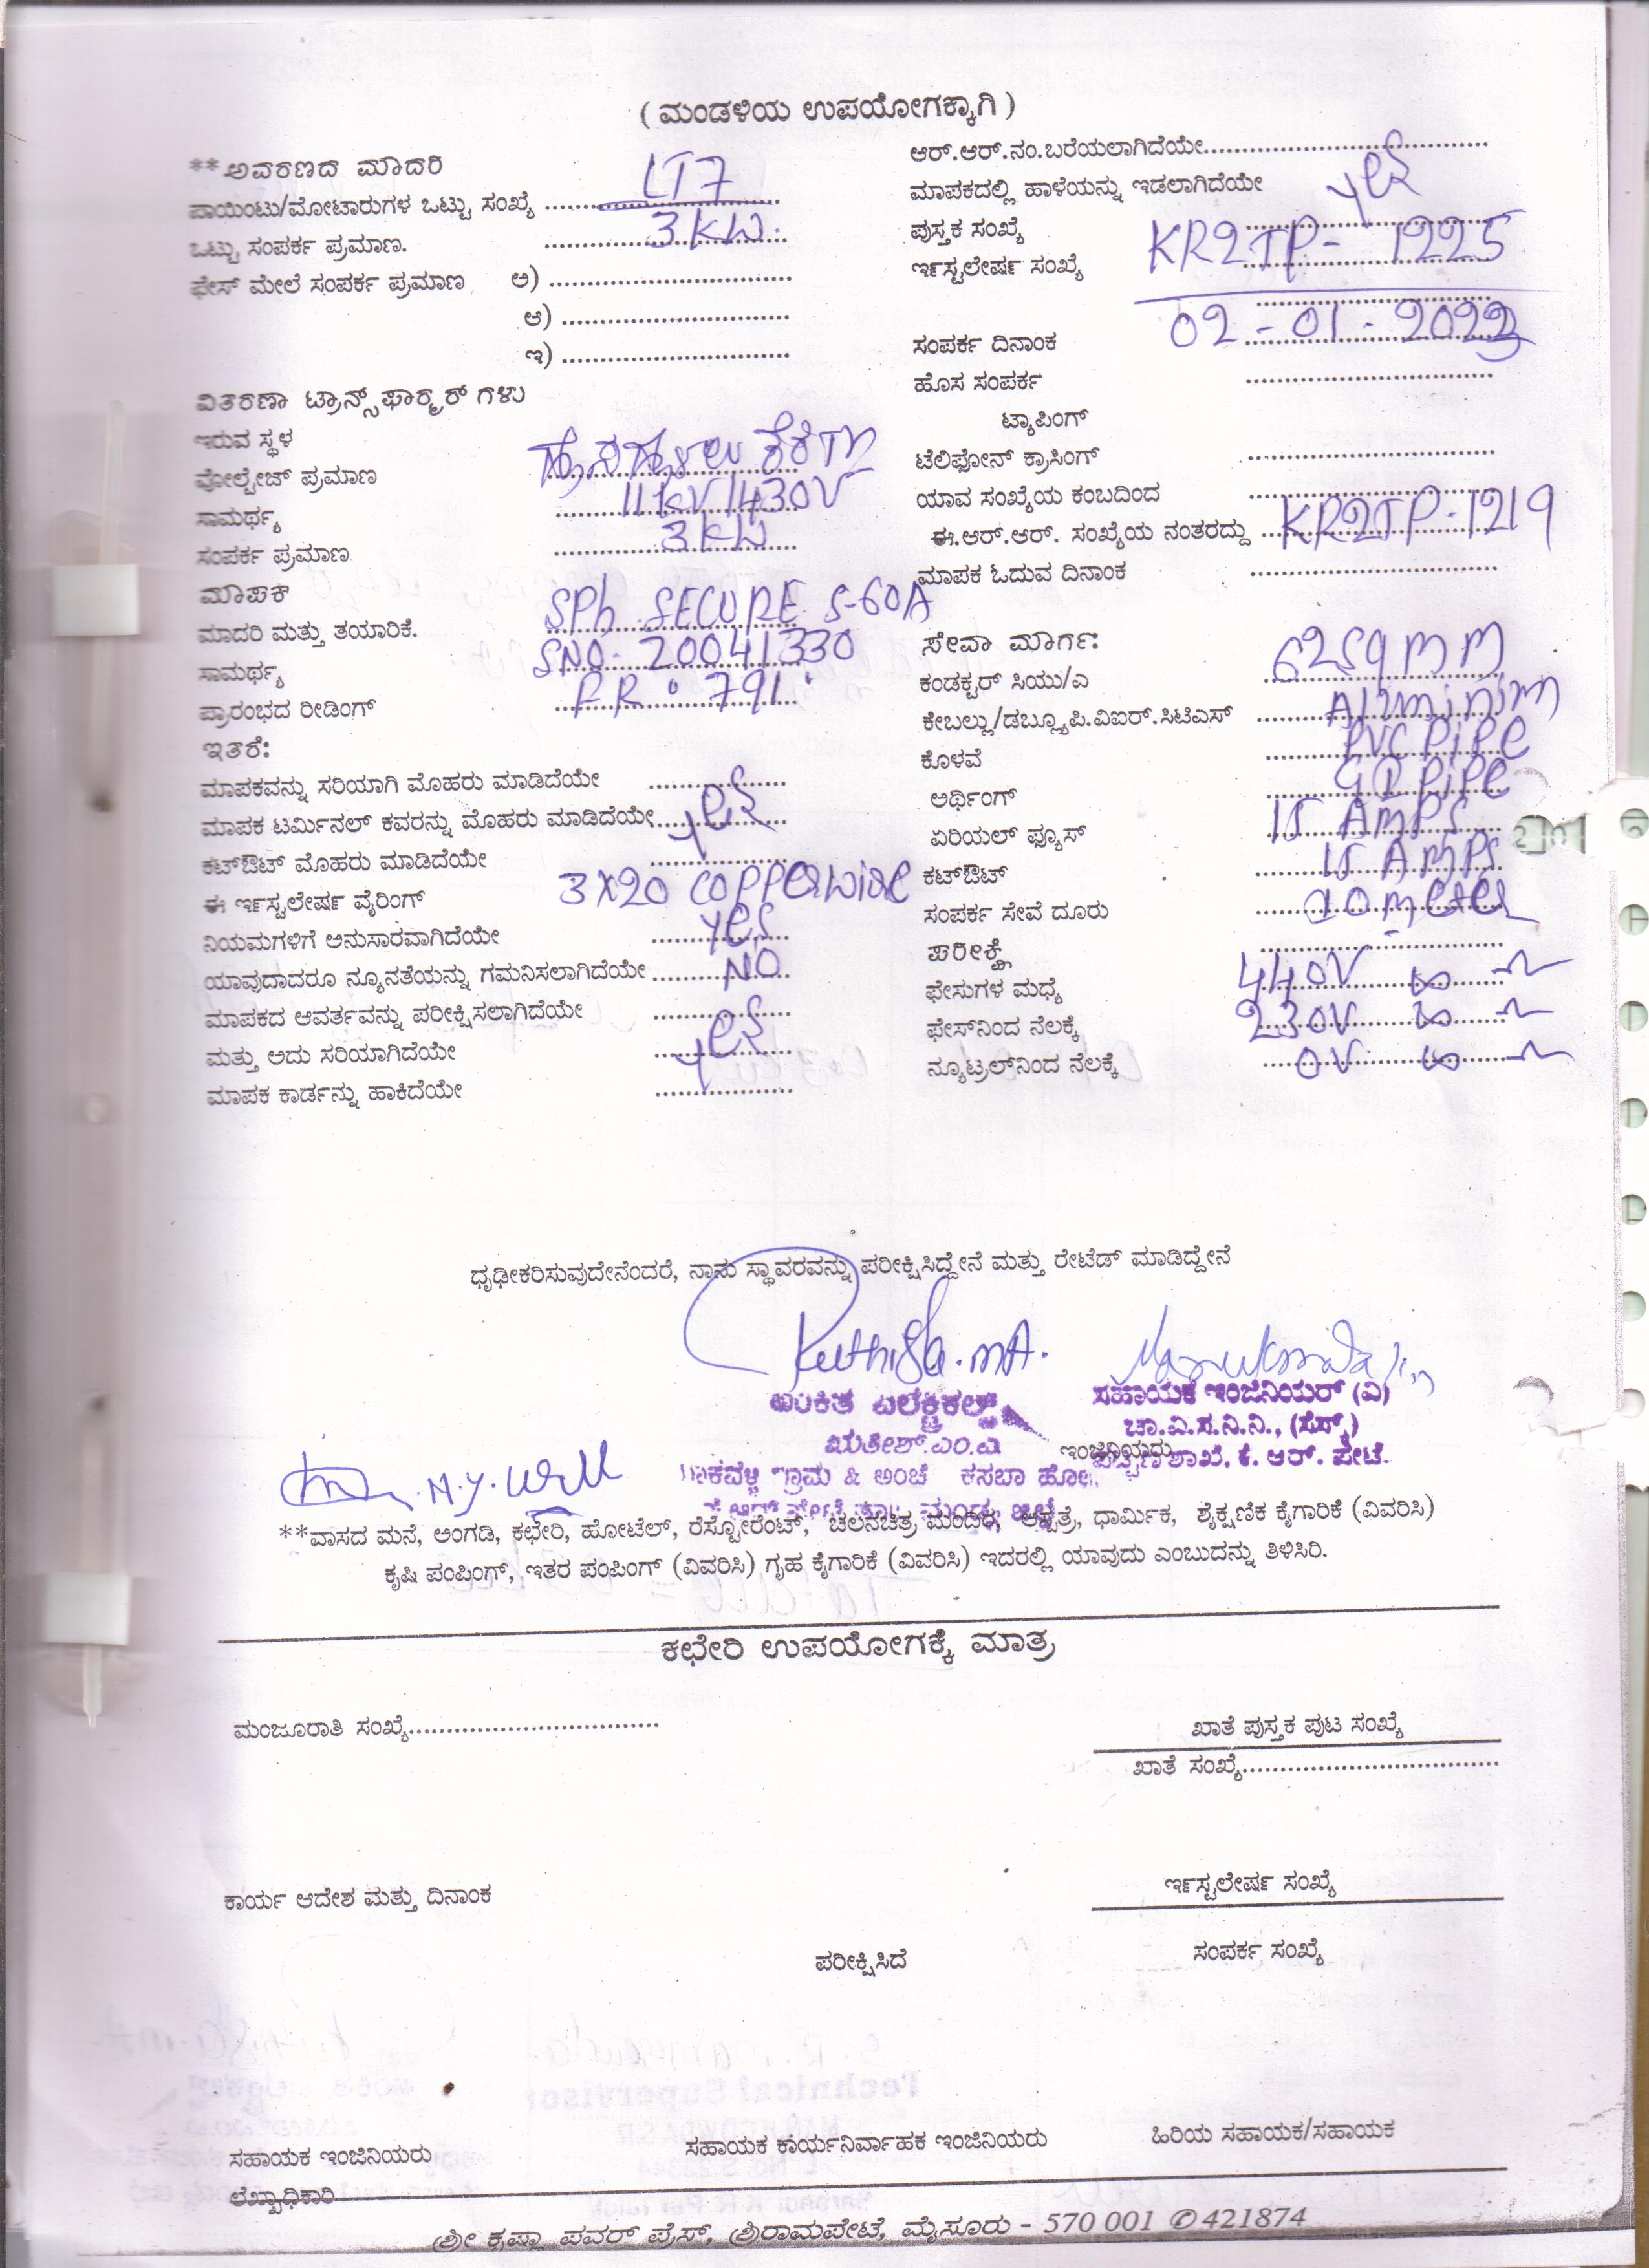 ( ಮಂಡಳಿಯ ಉಪಯೋಗಕ್ಕಾಗಿ )
**ಅವರಣದ ಮಾದರಿ
ಪಾಯಿಂಟು/ಮೋಟಾರುಗಳ ಒಟ್ಟು ಸಂಖ್ಯೆ LT7
ಒಟ್ಟು ಸಂಪರ್ಕ ಪ್ರಮಾಣ. 3 KW.
ಫೇಸ್ ಮೇಲೆ ಸಂಪರ್ಕ ಪ್ರಮಾಣ ಅ)
ಆ)
ಇ)
ವಿತರಣಾ ಟ್ರಾನ್ಸ್‌ಫಾರ್ಮರ್ ಗಳು
ಇರುವ ಸ್ಥಳ
ವೋಲ್ಟೇಜ್ ಪ್ರಮಾಣ
ಸಾಮರ್ಥ್ಯ 11KV/430V
ಸಂಪರ್ಕ ಪ್ರಮಾಣ 3KW
ಮಾಪಕ
ಮಾದರಿ ಮತ್ತು ತಯಾರಿಕೆ. SPh SECURE 5-60A
ಸಾಮರ್ಥ್ಯ SNO: 20041330
ಪ್ರಾರಂಭದ ರೀಡಿಂಗ್ FR: 791
ಇತರೆ:
ಮಾಪಕವನ್ನು ಸರಿಯಾಗಿ ಮೊಹರು ಮಾಡಿದೆಯೇ
ಮಾಪಕ ಟರ್ಮಿನಲ್ ಕವರನ್ನು ಮೊಹರು ಮಾಡಿದೆಯೇ yes
ಕಟ್‌ಔಟ್ ಮೊಹರು ಮಾಡಿದೆಯೇ
ಈ ಇರ್ನ್ಸ್ಟಲೇಷರ್ನ್ ವೈರಿಂಗ್ 3X20 COPPERWire
ನಿಯಮಗಳಿಗೆ ಅನುಸಾರವಾಗಿದೆಯೇ yes
ಯಾವುದಾದರೂ ನ್ಯೂನತೆಯನ್ನು ಗಮನಿಸಲಾಗಿದೆಯೇ NO
ಮಾಪಕದ ಆವರ್ತವನ್ನು ಪರೀಕ್ಷಿಸಲಾಗಿದೆಯೇ
ಮತ್ತು ಅದು ಸರಿಯಾಗಿದೆಯೇ yes
ಮಾಪಕ ಕಾರ್ಡನ್ನು ಹಾಕಿದೆಯೇ
ಆರ್.ಆರ್.ನಂ.ಬರೆಯಲಾಗಿದೆಯೇ
ಮಾಪಕದಲ್ಲಿ ಹಾಳೆಯನ್ನು ಇಡಲಾಗಿದೆಯೇ yes
ಪುಸ್ತಕ ಸಂಖ್ಯೆ
ಇರ್ನ್ಸ್ಟಲೇಷರ್ನ್ ಸಂಖ್ಯೆ KR2TP-1225
ಸಂಪರ್ಕ ದಿನಾಂಕ 02-01-2023
ಹೊಸ ಸಂಪರ್ಕ
ಟ್ಯಾಪಿಂಗ್
ಟೆಲಿಫೋನ್ ಕ್ರಾಸಿಂಗ್
ಯಾವ ಸಂಖ್ಯೆಯ ಕಂಬದಿಂದ
ಈ.ಆರ್.ಆರ್. ಸಂಖ್ಯೆಯ ನಂತರದ್ದು KR2TP-1219
ಮಾಪಕ ಓದುವ ದಿನಾಂಕ
ಸೇವಾ ಮಾರ್ಗ:
ಕಂಡಕ್ಟರ್ ಸಿಯು/ಎ 6259mm
ಕೇಬಲ್ಲು/ಡಬ್ಲ್ಯೂ.ಪಿ.ವಿಐರ್.ಸಿಟಿಎಸ್ Aluminim
ಕೊಳವೆ PVC PiPe
ಅರ್ಥಿಂಗ್ GI PiPe
ಏರಿಯಲ್ ಫ್ಯೂಸ್ 15 AMPS
ಕಟ್‌ಔಟ್ 15 AMPS
ಸಂಪರ್ಕ ಸೇವೆ ದೂರು
ಪರೀಕ್ಷೆ
ಫೇಸುಗಳ ಮಧ್ಯೆ 440V ∞
ಫೇಸ್‌ನಿಂದ ನೆಲಕ್ಕೆ 230V ∞
ನ್ಯೂಟ್ರಲ್‌ನಿಂದ ನೆಲಕ್ಕೆ 0V ∞
ಧೃಢೀಕರಿಸುವುದೇನೆಂದರೆ, ನಾನು ಸ್ಥಾವರವನ್ನು ಪರೀಕ್ಷಿಸಿದ್ದೇನೆ ಮತ್ತು ರೇಟೆಡ್ ಮಾಡಿದ್ದೇನೆ
Ruthisha.MA.
ಅಂಕಿತ ಎಲೆಕ್ಟ್ರಿಕಲ್ಸ್
ಋತೀಶ್.ಎಂ.ಎ
ಗ್ರಾಮ & ಅಂಚೆ ಕಸಬಾ ಹೋ.
ಸಹಾಯಕ ಇಂಜಿನಿಯರ್ (ವಿ)
ಚಾ.ವಿ.ಸ.ನಿ.ನಿ., (ಸೆಸ್ಕ್)
ಇಂಜಿನಿಯರು
ಪಟ್ಟಣ ಶಾಖೆ, ಕೆ. ಆರ್. ಪೇಟೆ.
**ವಾಸದ ಮನೆ, ಅಂಗಡಿ, ಕಛೇರಿ, ಹೋಟೆಲ್, ರೆಸ್ಟೋರೆಂಟ್, ಚಲನಚಿತ್ರ ಮಂದಿರ, ಆಸ್ಪತ್ರೆ, ಧಾರ್ಮಿಕ, ಶೈಕ್ಷಣಿಕ ಕೈಗಾರಿಕೆ (ವಿವರಿಸಿ)
ಕೃಷಿ ಪಂಪಿಂಗ್, ಇತರ ಪಂಪಿಂಗ್ (ವಿವರಿಸಿ) ಗೃಹ ಕೈಗಾರಿಕೆ (ವಿವರಿಸಿ) ಇದರಲ್ಲಿ ಯಾವುದು ಎಂಬುದನ್ನು ತಿಳಿಸಿರಿ.
ಕಛೇರಿ ಉಪಯೋಗಕ್ಕೆ ಮಾತ್ರ
ಮಂಜೂರಾತಿ ಸಂಖ್ಯೆ
ಖಾತೆ ಪುಸ್ತಕ ಪುಟ ಸಂಖ್ಯೆ
ಖಾತೆ ಸಂಖ್ಯೆ
ಕಾರ್ಯ ಆದೇಶ ಮತ್ತು ದಿನಾಂಕ
ಇರ್ನ್ಸ್ಟಲೇಷರ್ನ್ ಸಂಖ್ಯೆ
ಪರೀಕ್ಷಿಸಿದೆ
ಸಂಪರ್ಕ ಸಂಖ್ಯೆ
ಸಹಾಯಕ ಇಂಜಿನಿಯರು
ಸಹಾಯಕ ಕಾರ್ಯನಿರ್ವಾಹಕ ಇಂಜಿನಿಯರು
ಹಿರಿಯ ಸಹಾಯಕ/ಸಹಾಯಕ
ಲೆಖ್ಖಾಧಿಕಾರಿ
ಶ್ರೀ ಕೃಷ್ಣಾ ಪವರ್ ಪ್ರೆಸ್, ಶ್ರೀರಾಮಪೇಟೆ, ಮೈಸೂರು - 570 001 ✆ 421874